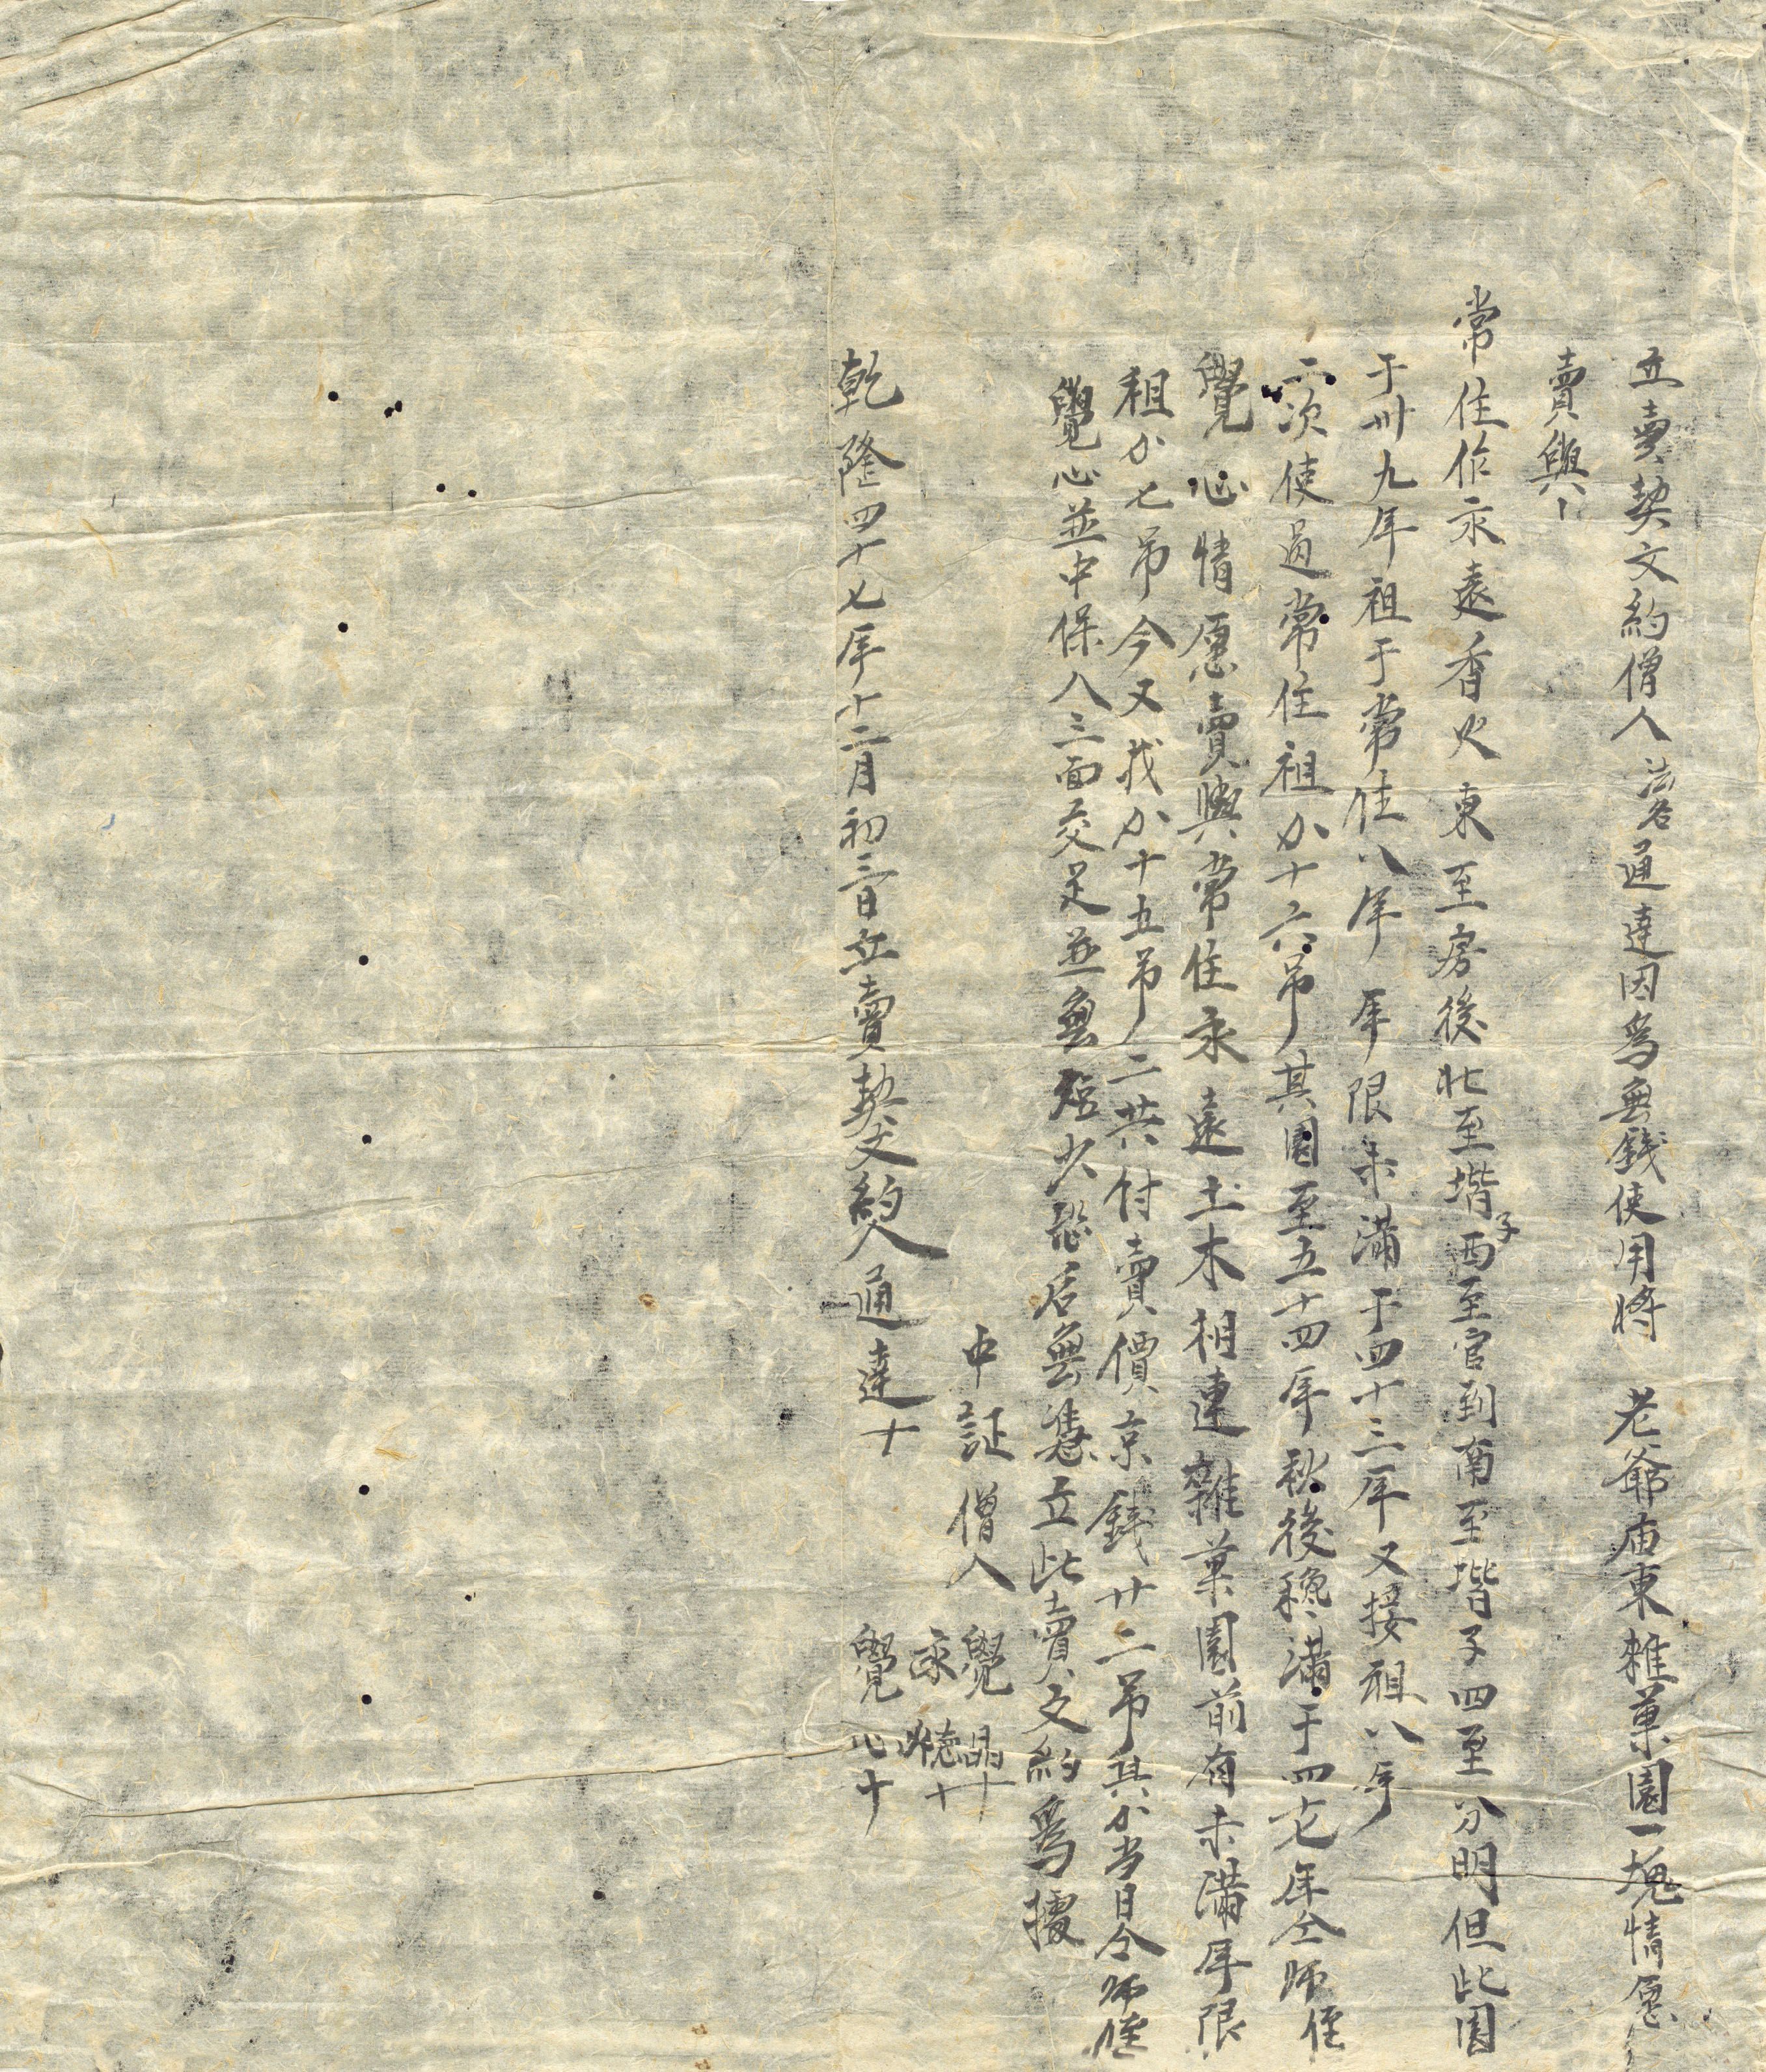 立賣契文約僧人法名通達因為無錢使用將 老爺庙東雜菓園一塊情愿
賣與
常住作永遠香火東至房後北至堦子西至官到南至堦子四至分明但此园
于卅九年祖于常住八年年限未滿于四十三年又接祖八年
二次使过常住祖価十六吊其園至五十四年秋後穐滿于四十七年仝师侄
覺心情愿賣與常住永遠土木相連雜菓園前有未滿年限
祖価七吊今又找価十五吊二共付賣價京錢廿二吊其価当日仝师侄
覺心並中保人三面交足並無短少恐后無憑立此賣文約為據
中証僧人 覺晶十
永聰十
覺心十
乾隆四十七年十二月初三日立賣契文約人通達十